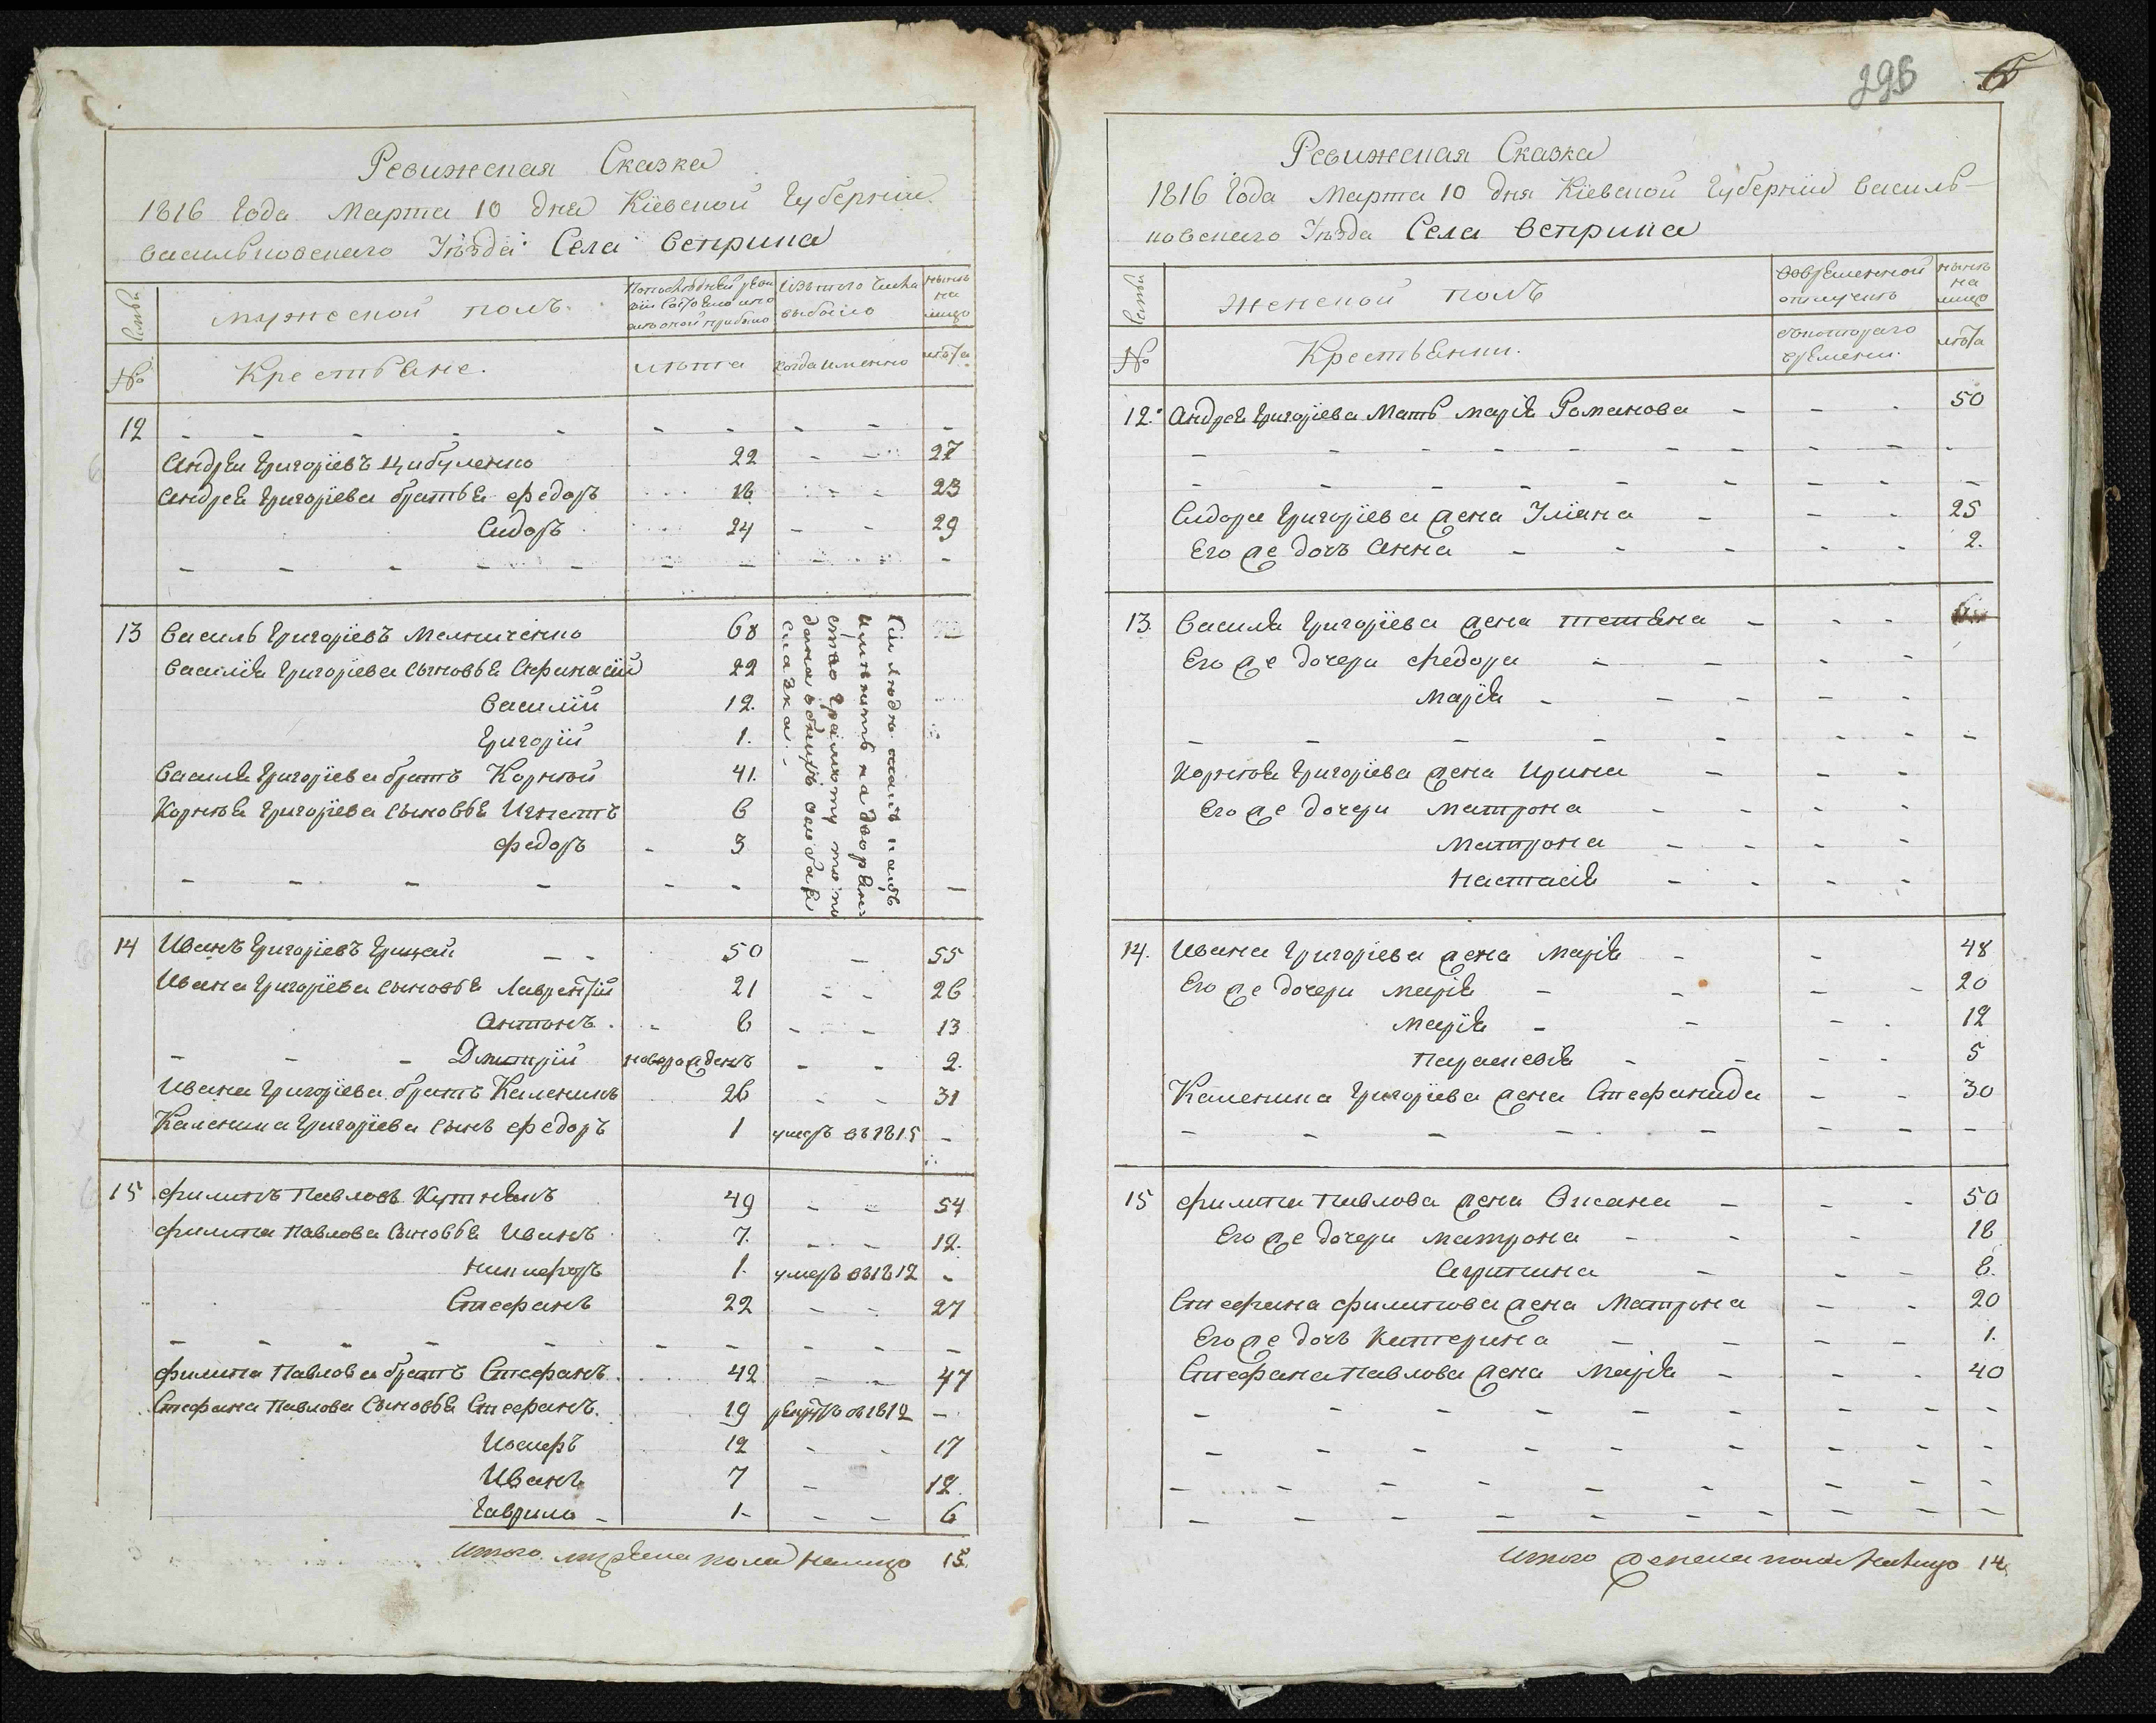 295 6
Ревижская Сказка
1816 Года Марта 10 дня Кіевской Губерніи
Васильковскаго Уѣзда Села Веприка
Семьи
Мужеской полъ.
По последней ревизіи состояло и по оной прибыло
Изъ того числа выбыло
нынѣ на лицо
№
Крестьяне.
лѣта
когда именно
лѣта
12 - - - - -
Андрей Григоріевъ Цибуленко 22 - - 27
Андрея Григоріева братья Федоръ 18 - - 23
Сидоръ 24 - - 29
13 Василь Григоріевъ Мелниченко 68
Василія Григоріева сыновья Афанасій 22
Василій 12.
Григорій 1.
Василя Григоріева братъ Корнѣй 41.
Корнѣя Григоріева сыновья Игнатъ 6
Федоръ - 3
Сіи люди
на дворян
ство грамоту
сказка.
14 Иванъ Григоріевъ Грицай - - 50 - 55
Ивана Григоріева сыновья Лаврентій 21 - - 26
Антонъ. - 8 - - 13
- - - Дмитрій новорожденъ - - 2.
Ивана Григоріева братъ Каленикъ 26 - - 31
Каленика Григоріева сынъ Федоръ 1 умеръ въ 1815 -
15 Филипъ Павловъ Кутнякъ 49 - - 54
Филипа Павлова сыновья Иванъ 7. - - 12.
Никифоръ 1. умеръ въ 1812 -
Стефанъ 22 - - 27
- - - - - - - - - -
Филипа Павлова братъ Стефанъ 42 - - 47
Стефана Павлова сыновья Стефанъ. 19 рекрутъ въ 1812 -
Иосифъ 12 - - 17
Иванъ 7 - 12.
Гаврило - 1- - - 6
Итого мужеска пола налицо 15.
Ревижская Сказка
1816 Года Марта 10 дня Кіевской Губерніи Василь-
ковскаго Уѣзда Села Веприка
Семьи
Женской полъ
Во временной отлучкѣ
нынѣ на лицо
№
Крестьянки.
съ котораго времени.
лѣта
12. Андрея Григоріева Мать Марія Романова - - - 50
Сидора Григоріева жена Уліяна - - - 25
Его же дочь Анна - - - - - 2.
13. Василя Григоріева жена Тетяна - - -
Его же дочери Федора - - - -
Марія - - - - -
- - - - - - - -
Корнѣя Григоріева жена Ирина - - -
Его же дочери Матрона - - - -
Матрона - - - -
Настасія - - - -
14. Ивана Григоріева жена Марія - - 48
Его же дочери Марія - - - - 20
Марія - - - - 12
Параскевія - - - - 5
Каленика Григоріева жена Стефанида - - 30
- - - - - - - -
15 Филипа Павлова жена Оксана - - - 50
Его же дочери Матрона - - - 18
Агрипина - - - 8.
Стефана Филипова жена Матрона - - 20
Его же дочь Катерина - - - - 1.
Стефана Павлова жена Марія - - - 40
Итого женска пола налицо 14.